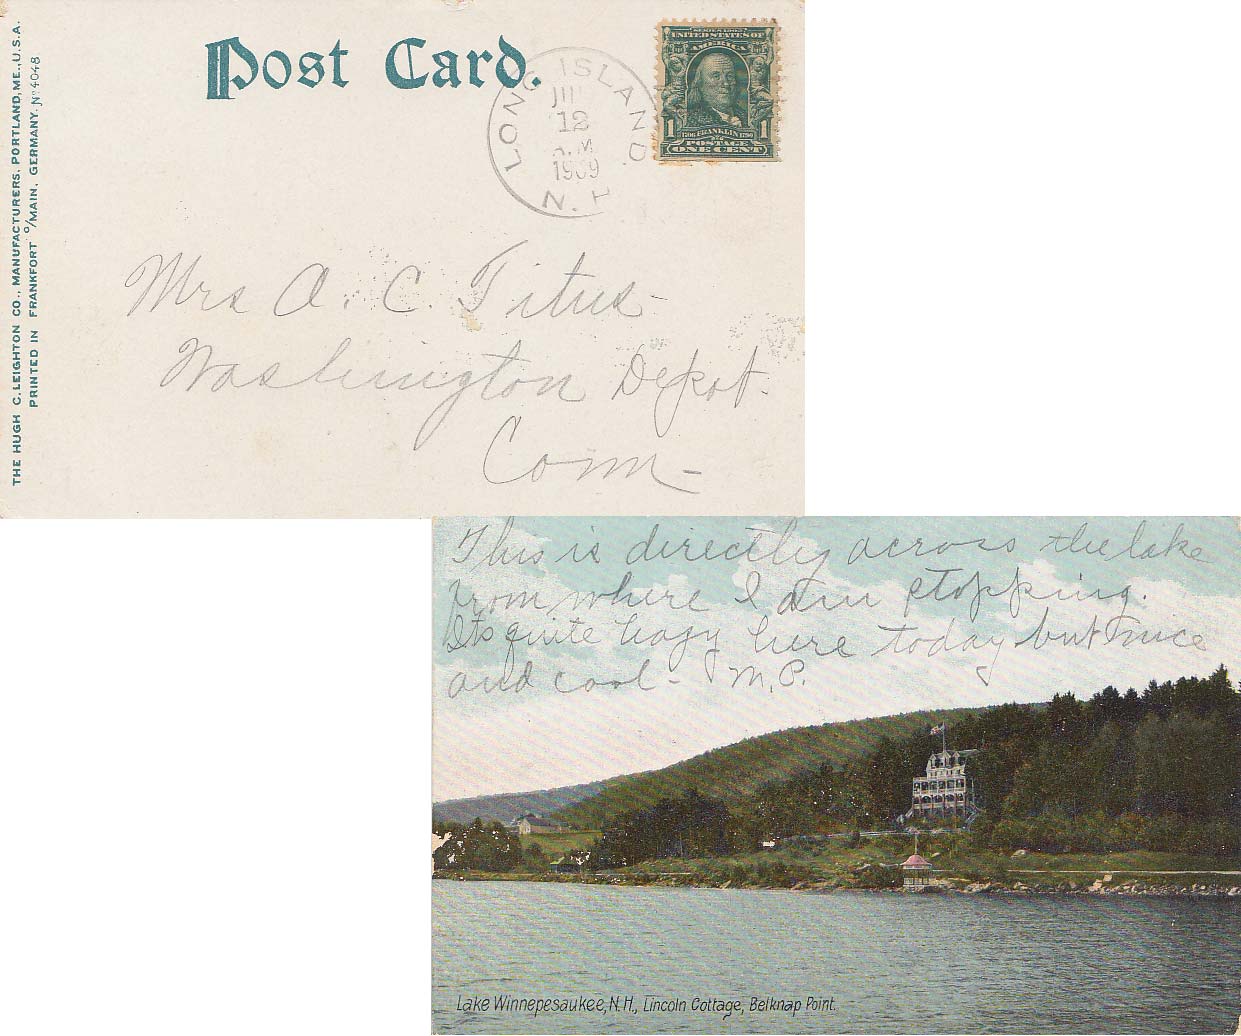 THE HUGH C. LEIGHTON CO., MANUFACTURERS, PORTLAND, ME., U.S.A.
PRINTED IN FRANKFORT o/MAIN, GERMANY. No 4048
Post Card.
LONG ISLAND
12
A.M
1909
N.H
SERIES 1902
UNITED STATES OF
AMERICA
1706 FRANKLIN 1790
1 1
POSTAGE
ONE CENT
Mrs A. C. Titus
Washington Depot.
Conn
This is directly across the lake
from where I am stopping.
Its quite hazy here today but nice
and cool - M.P.
Lake Winnepesaukee, N.H., Lincoln Cottage, Belknap Point.